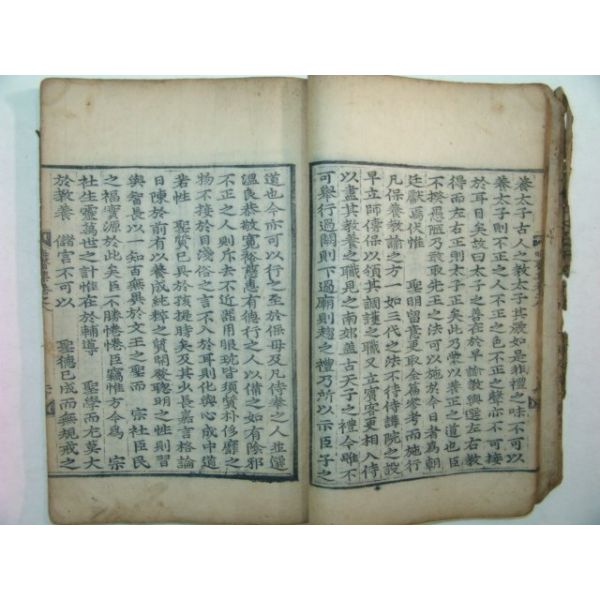 養太子古人之教太子其嚴如是非禮之味不可以
養太子則不正之人不正之色不正之聲亦不可接
於耳目矣故曰太子之善在於早諭教與選左右教
得而左右正則太子正矣此乃蒙以養正之道也臣
不揆愚陋乃敢取先王之法可以施於今日者爲朝
廷獻焉伏惟 聖明留意更取余蒭堯考而施行
凡保養教諭之方一如三代之法不待侍講院之設
早立師傅保以領其調護之職又立賓客更相入侍
以盡其教養之職見之南郊盖古天子之禮今雖不
可舉行過闕則下過廟則趨之禮乃所以示臣子之
道也今亦可以行之至於保母及凡侍奉之人並選
溫良恭敬寬裕慈惠有德行之人以備之如有陰邪
不正之人則斥去不近器用服玩皆須質朴侈靡之
物不接於目淺俗之言不入於耳則化與心成中道
若性 聖質已異於孩提時矣及其出長嘉言格論
日陳於前有以養成純粹之質開發聰明之性則習
與智長以一知百無異於文王之聖而 宗社臣民
之福實源於此矣臣不勝惓惓臣竊惟方今爲 宗
社生靈萬世之計惟在於輔導 聖學而尤莫大
於教養 儲宮不可以 聖德已成而無規戒之